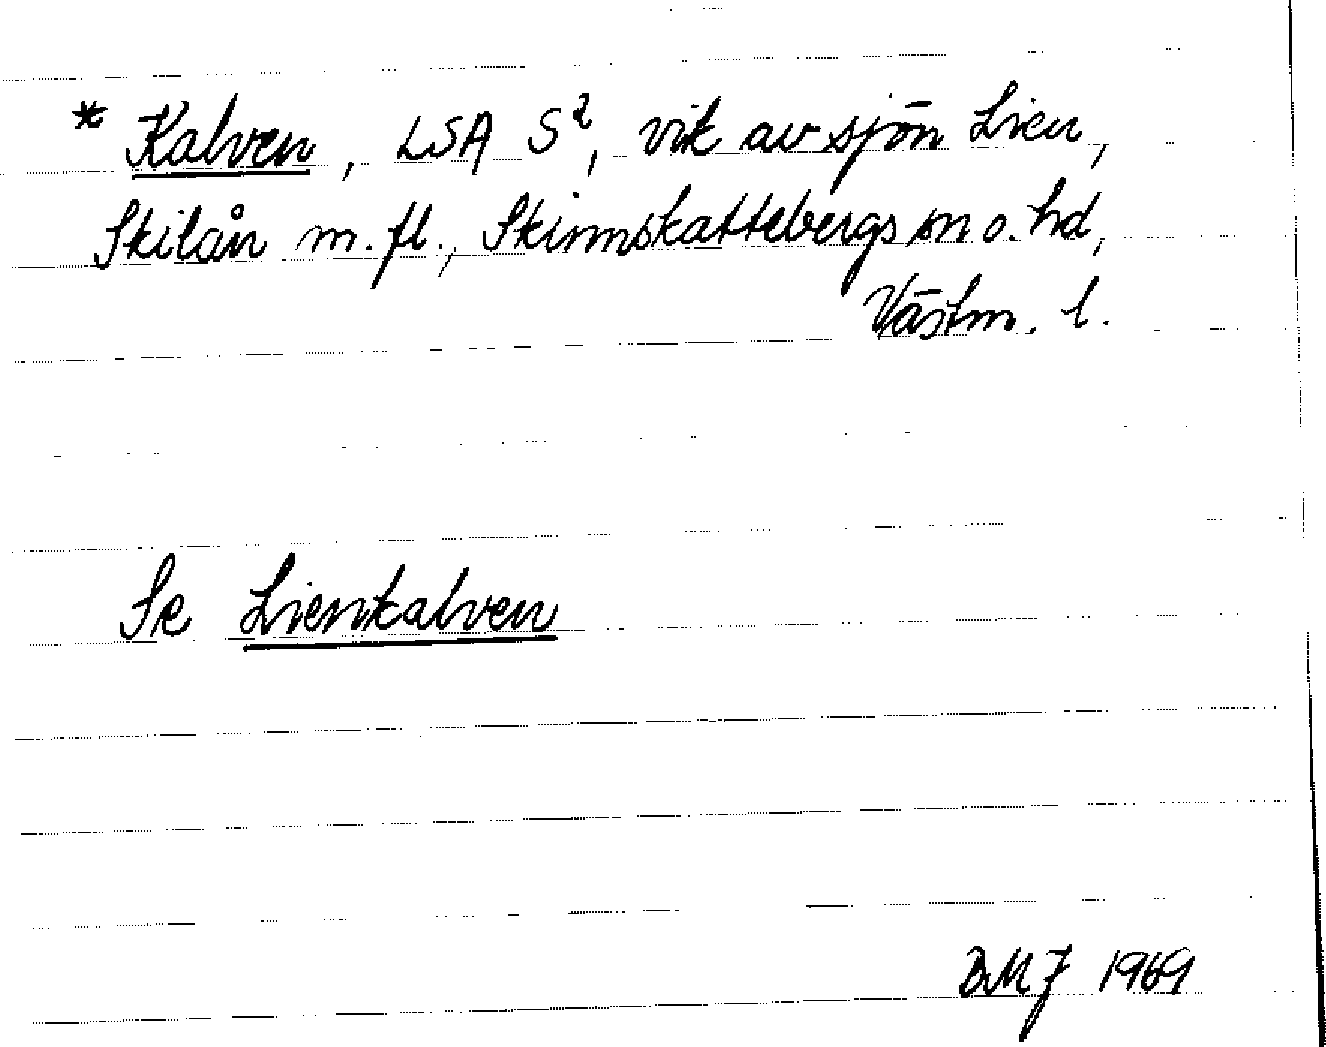 * Kalven, LSA S², vik av sjön Lien,
Skilån m. fl., Skinnskattebergs sn o. hd,
Västm. l.
Se Lienkalven
BMJ 1969